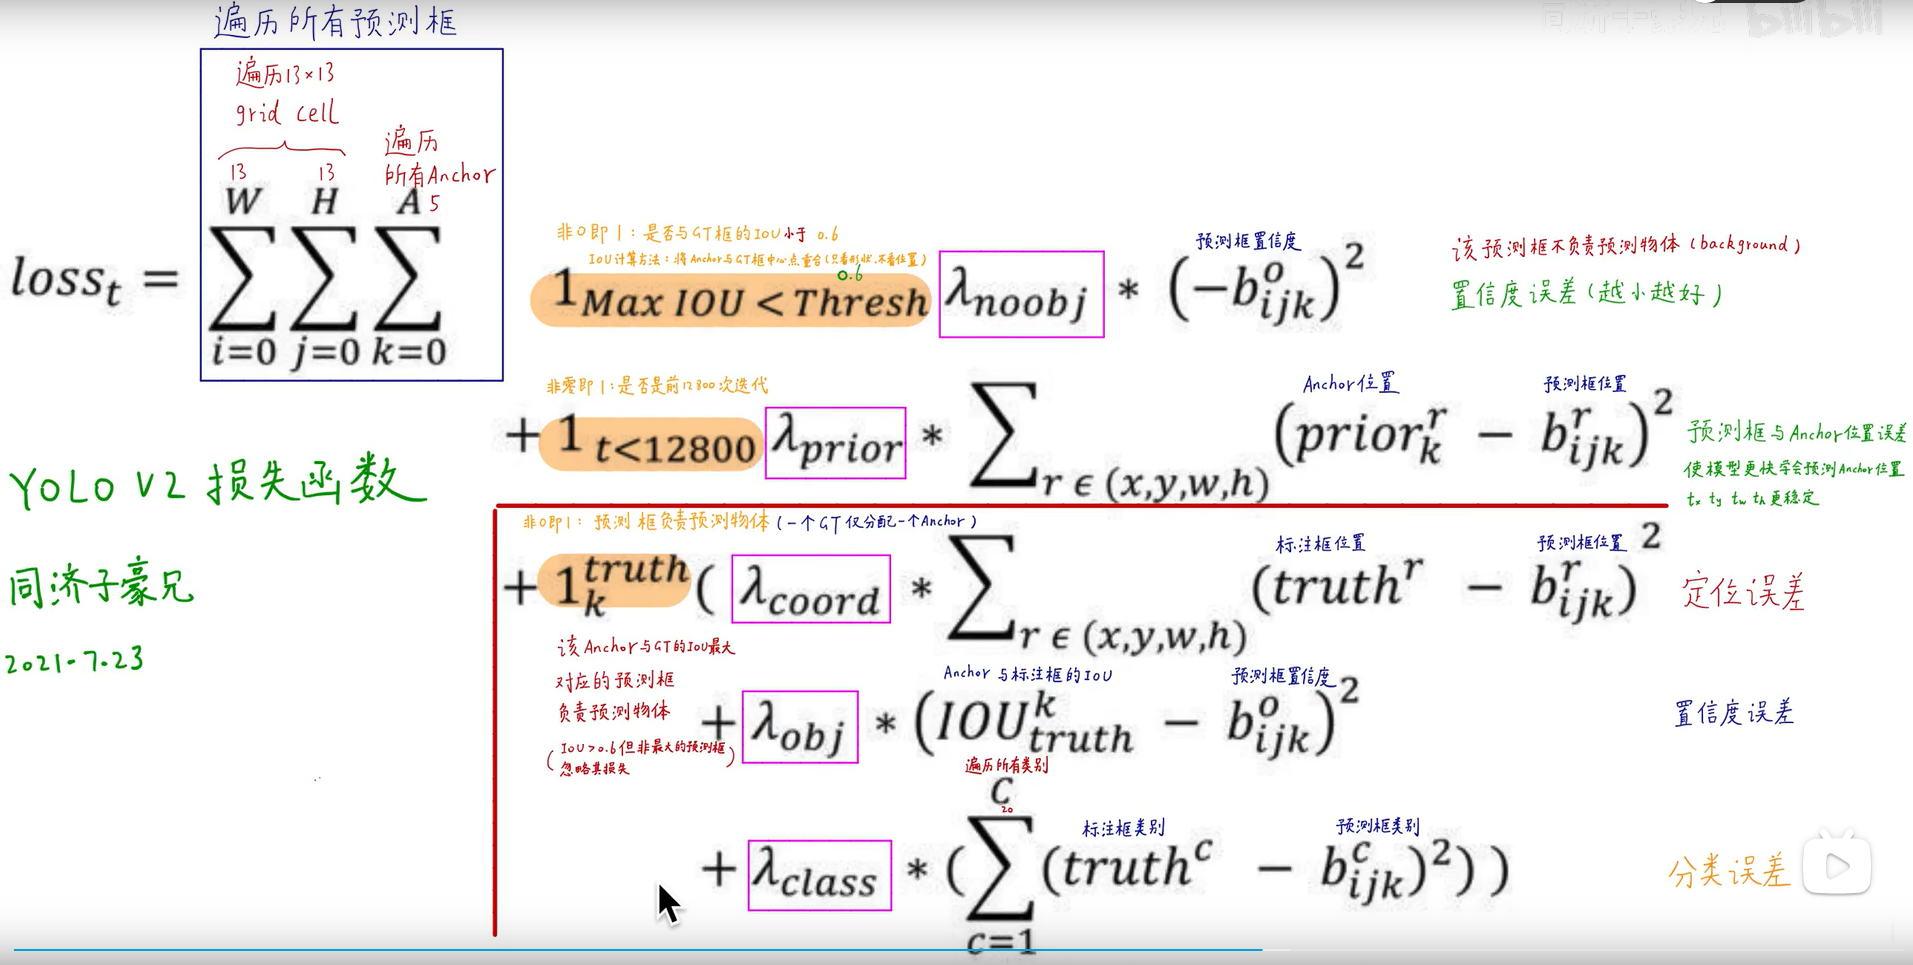 遍历所有预测框
遍历13×13
grid cell
遍历
所有Anchor
13 13 5
W H A
loss_t = ∑ ∑ ∑
i=0 j=0 k=0
非0即1：是否与GT框的IOU小于 0.6
IOU计算方法：将Anchor与GT框中心点重合(只看形状,不看位置)
0.6
预测框置信度
1_{Max IOU < Thresh} λ_{noobj} * (−b^o_{ijk})^2
该预测框不负责预测物体(background)
置信度误差(越小越好)
非零即1:是否是前12800次迭代
Anchor位置 预测框位置
+ 1_{t<12800} λ_{prior} * ∑_{r ϵ (x,y,w,h)} (prior^r_k − b^r_{ijk})^2
预测框与Anchor位置误差
使模型更快学会预测Anchor位置
tx ty tw th更稳定
YOLO V2 损失函数
同济子豪兄
2021.7.23
非0即1：预测框负责预测物体(一个GT仅分配一个Anchor)
标注框位置 预测框位置
+ 1^{truth}_k ( λ_{coord} * ∑_{r ϵ (x,y,w,h)} (truth^r − b^r_{ijk})^2
定位误差
该Anchor与GT的IOU最大
对应的预测框
负责预测物体
(IOU>0.6但非最大的预测框
忽略其损失)
Anchor 与标注框的IOU 预测框置信度
+ λ_{obj} * (IOU^k_{truth} − b^o_{ijk})^2
置信度误差
遍历所有类别
C
20
标注框类别 预测框类别
+ λ_{class} * (∑ (truth^c − b^c_{ijk})^2))
c=1
分类误差
bilibili